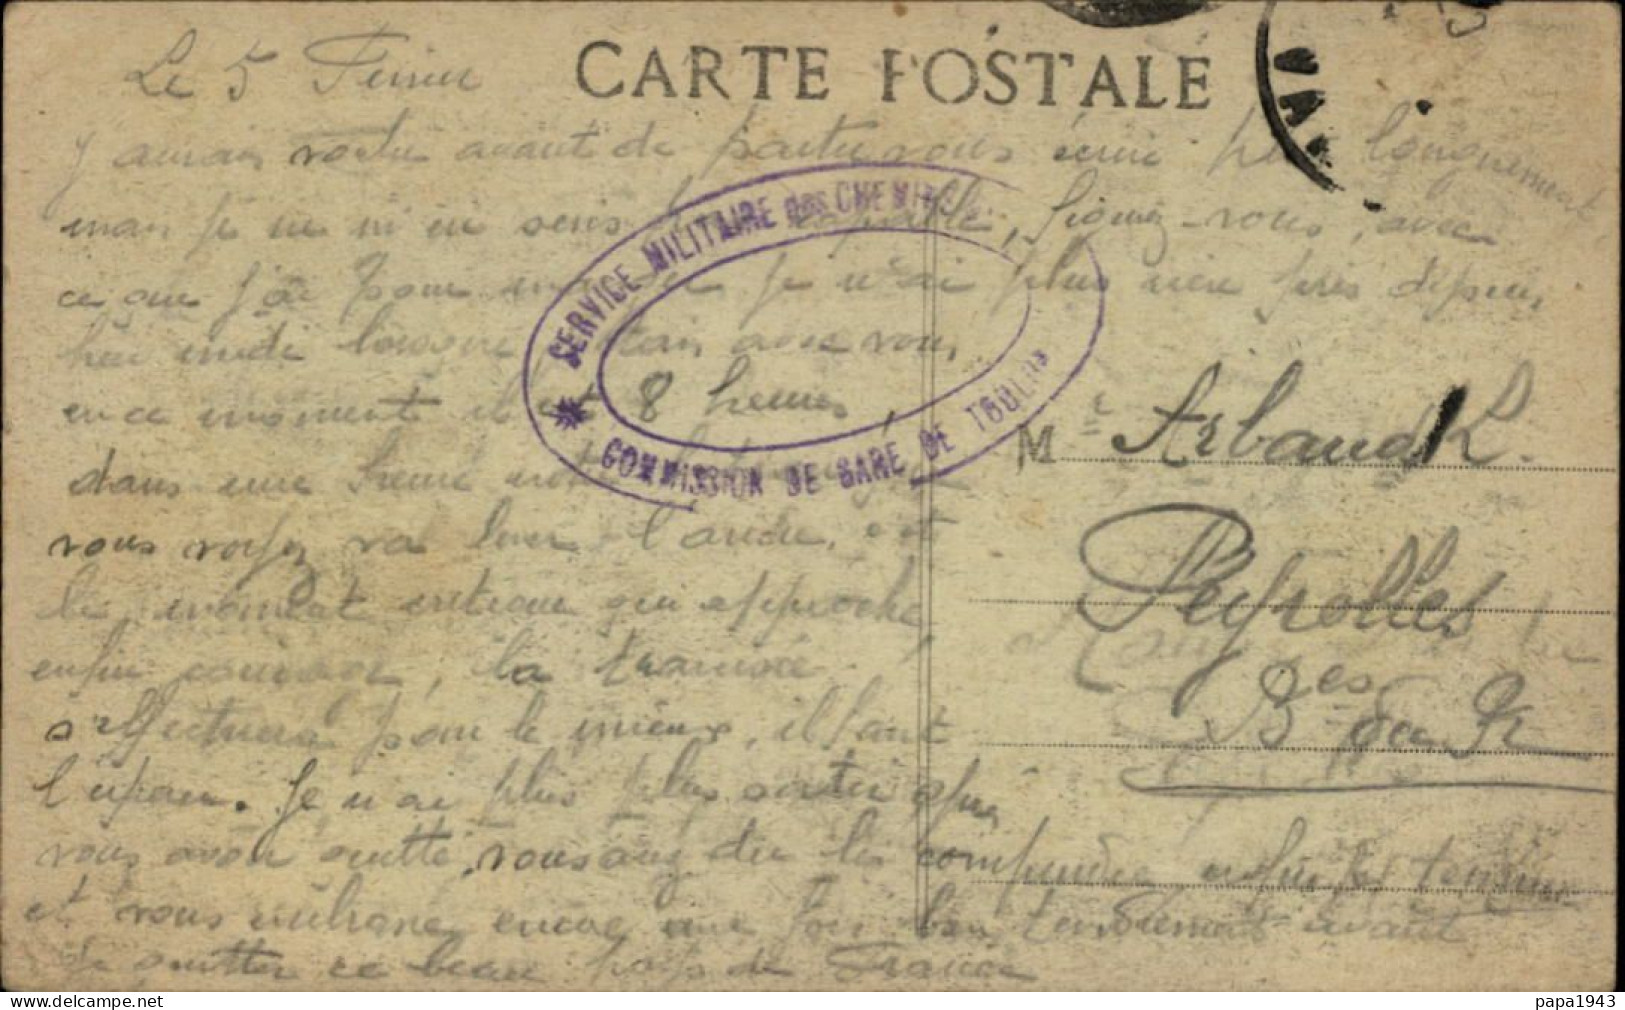 CARTE POSTALE
Le 5 Février
J'aurais voulu avant de partir vous écrire plus longuement
mais je ne m'en sens pas capable, figurez-vous, avec
ce que j'ai pour je n'ai plus rien pris depuis
hier midi lorsque j'étais avec vous,
en ce moment il est 8 heures,
dans une heure notre
vous voyez va lever l'ancre, et
le moment critique qui approche,
enfin courage, la traversée
s'effectuera pour le mieux, il faut
l'espérer. Je n'ai plus plus sorti après
vous avoir quitté, vous avez du les comprendre enfin je termine
et vous embrasse encore une fois bien tendrement avant
de quitter ce beau pays de France
SERVICE MILITAIRE des CHEMINS
COMMISSION DE GARE DE TOULON
VAR
M r Arbaud L.
Peyrolles
B es du R
papa1943